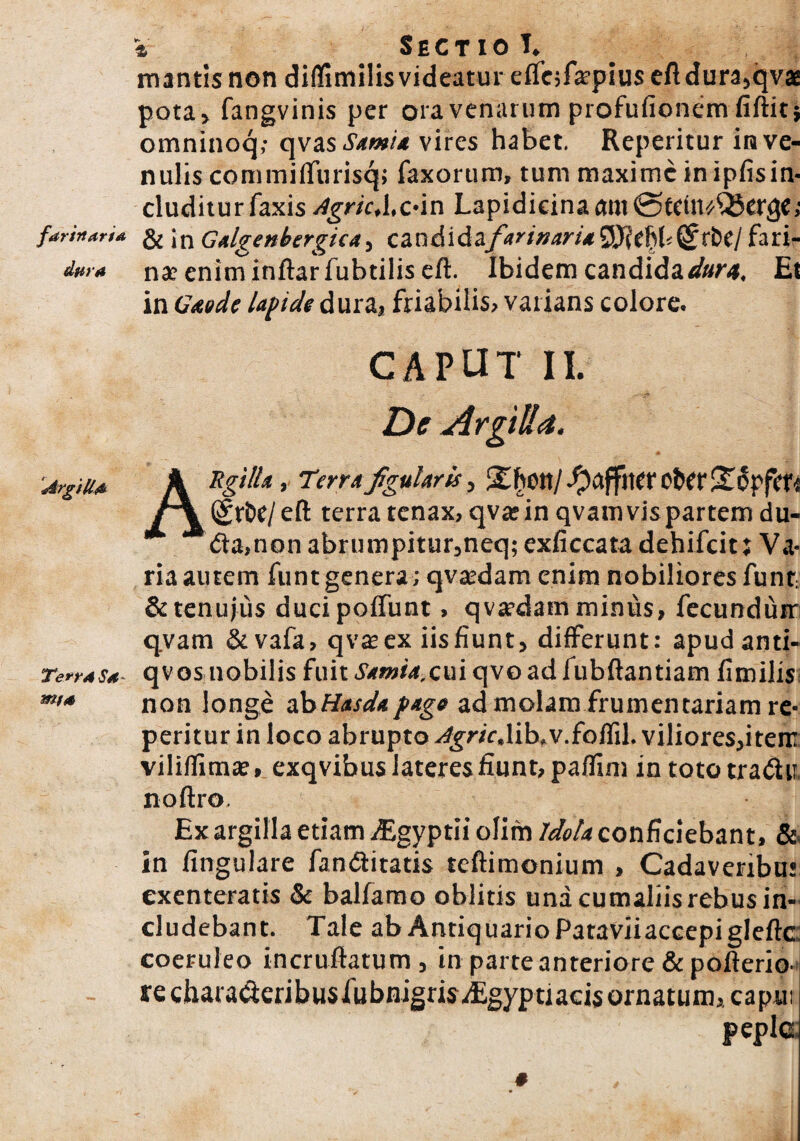 2 SECTIO I.
mantis non diſſimilis videatur eſſe; ſæpius eſt dura, qvæ
pota, ſangvinis per ora venarum profuſionem ſiſtit;
omninoq; qvas Samia vires habet. Reperitur in ve-
nulis commiſſurisq; ſaxorum, tum maximè in ipſis in-
cluditur ſaxis Agric. l. c. in Lapidicina am Stein-Berge;
farinaria & in Galgenbergica, candida farinaria Mehl-Erde/ fari-
dura næ enim inſtar ſubtilis eſt. Ibidem candida dura. Et
in Gaode lapide dura, friabilis, varians colore.
CAPUT II.
De Argilla.
Argilla ARgilla, Terra figularis, Thon/ Haffner oder Töpfer-
Erde/ eſt terra tenax, qvæ in qvamvis partem du-
cta, non abrumpitur, neq; exſiccata dehiſcit: Va-
ria autem ſunt genera; qvædam enim nobiliores ſunt.
& tenujùs duci poſſunt, qvædam minùs, ſecundùm
qvam & vaſa, qvæ ex iis fiunt, differunt: apud anti-
Terra Sa- qvos nobilis fuit Samia, cui qvo ad ſubſtantiam ſimilis
mia non longè ab Hasda pago ad molam frumentariam re-
peritur in loco abrupto Agric. lib. v. foſſil. viliores, item
viliſſimæ, exqvibus lateres fiunt, paſſim in toto tractu
noſtro.
Ex argilla etiam Ægyptii olim Idola conficiebant, &
in ſingulare ſanctitatis teſtimonium , Cadaveribus
exenteratis & balſamo oblitis unà cum aliis rebus in-
cludebant. Tale ab Antiquario Patavii accepi gleſto
coeruleo incruſtatum, in parte anteriore & poſterio-
re characteribus ſubnigris Ægyptiacis ornatum, caput
peplo